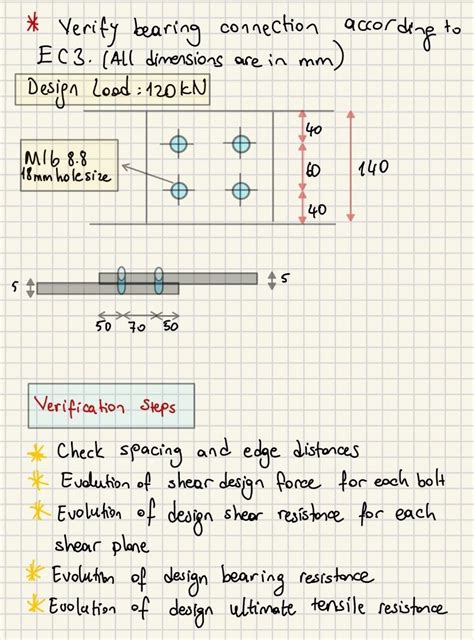 * Verify bearing connection according to
EC3. (All dimensions are in mm)
Design Load: 120 kN
M16 8.8
18mm hole size
40
60
40
140
5
5
50 70 50
Verification Steps
* Check spacing and edge distances
* Evolution of shear design force for each bolt
* Evolution of design shear resistance for each
shear plane
* Evolution of design bearing resistance
* Evolation of design ultimate tensile resistance